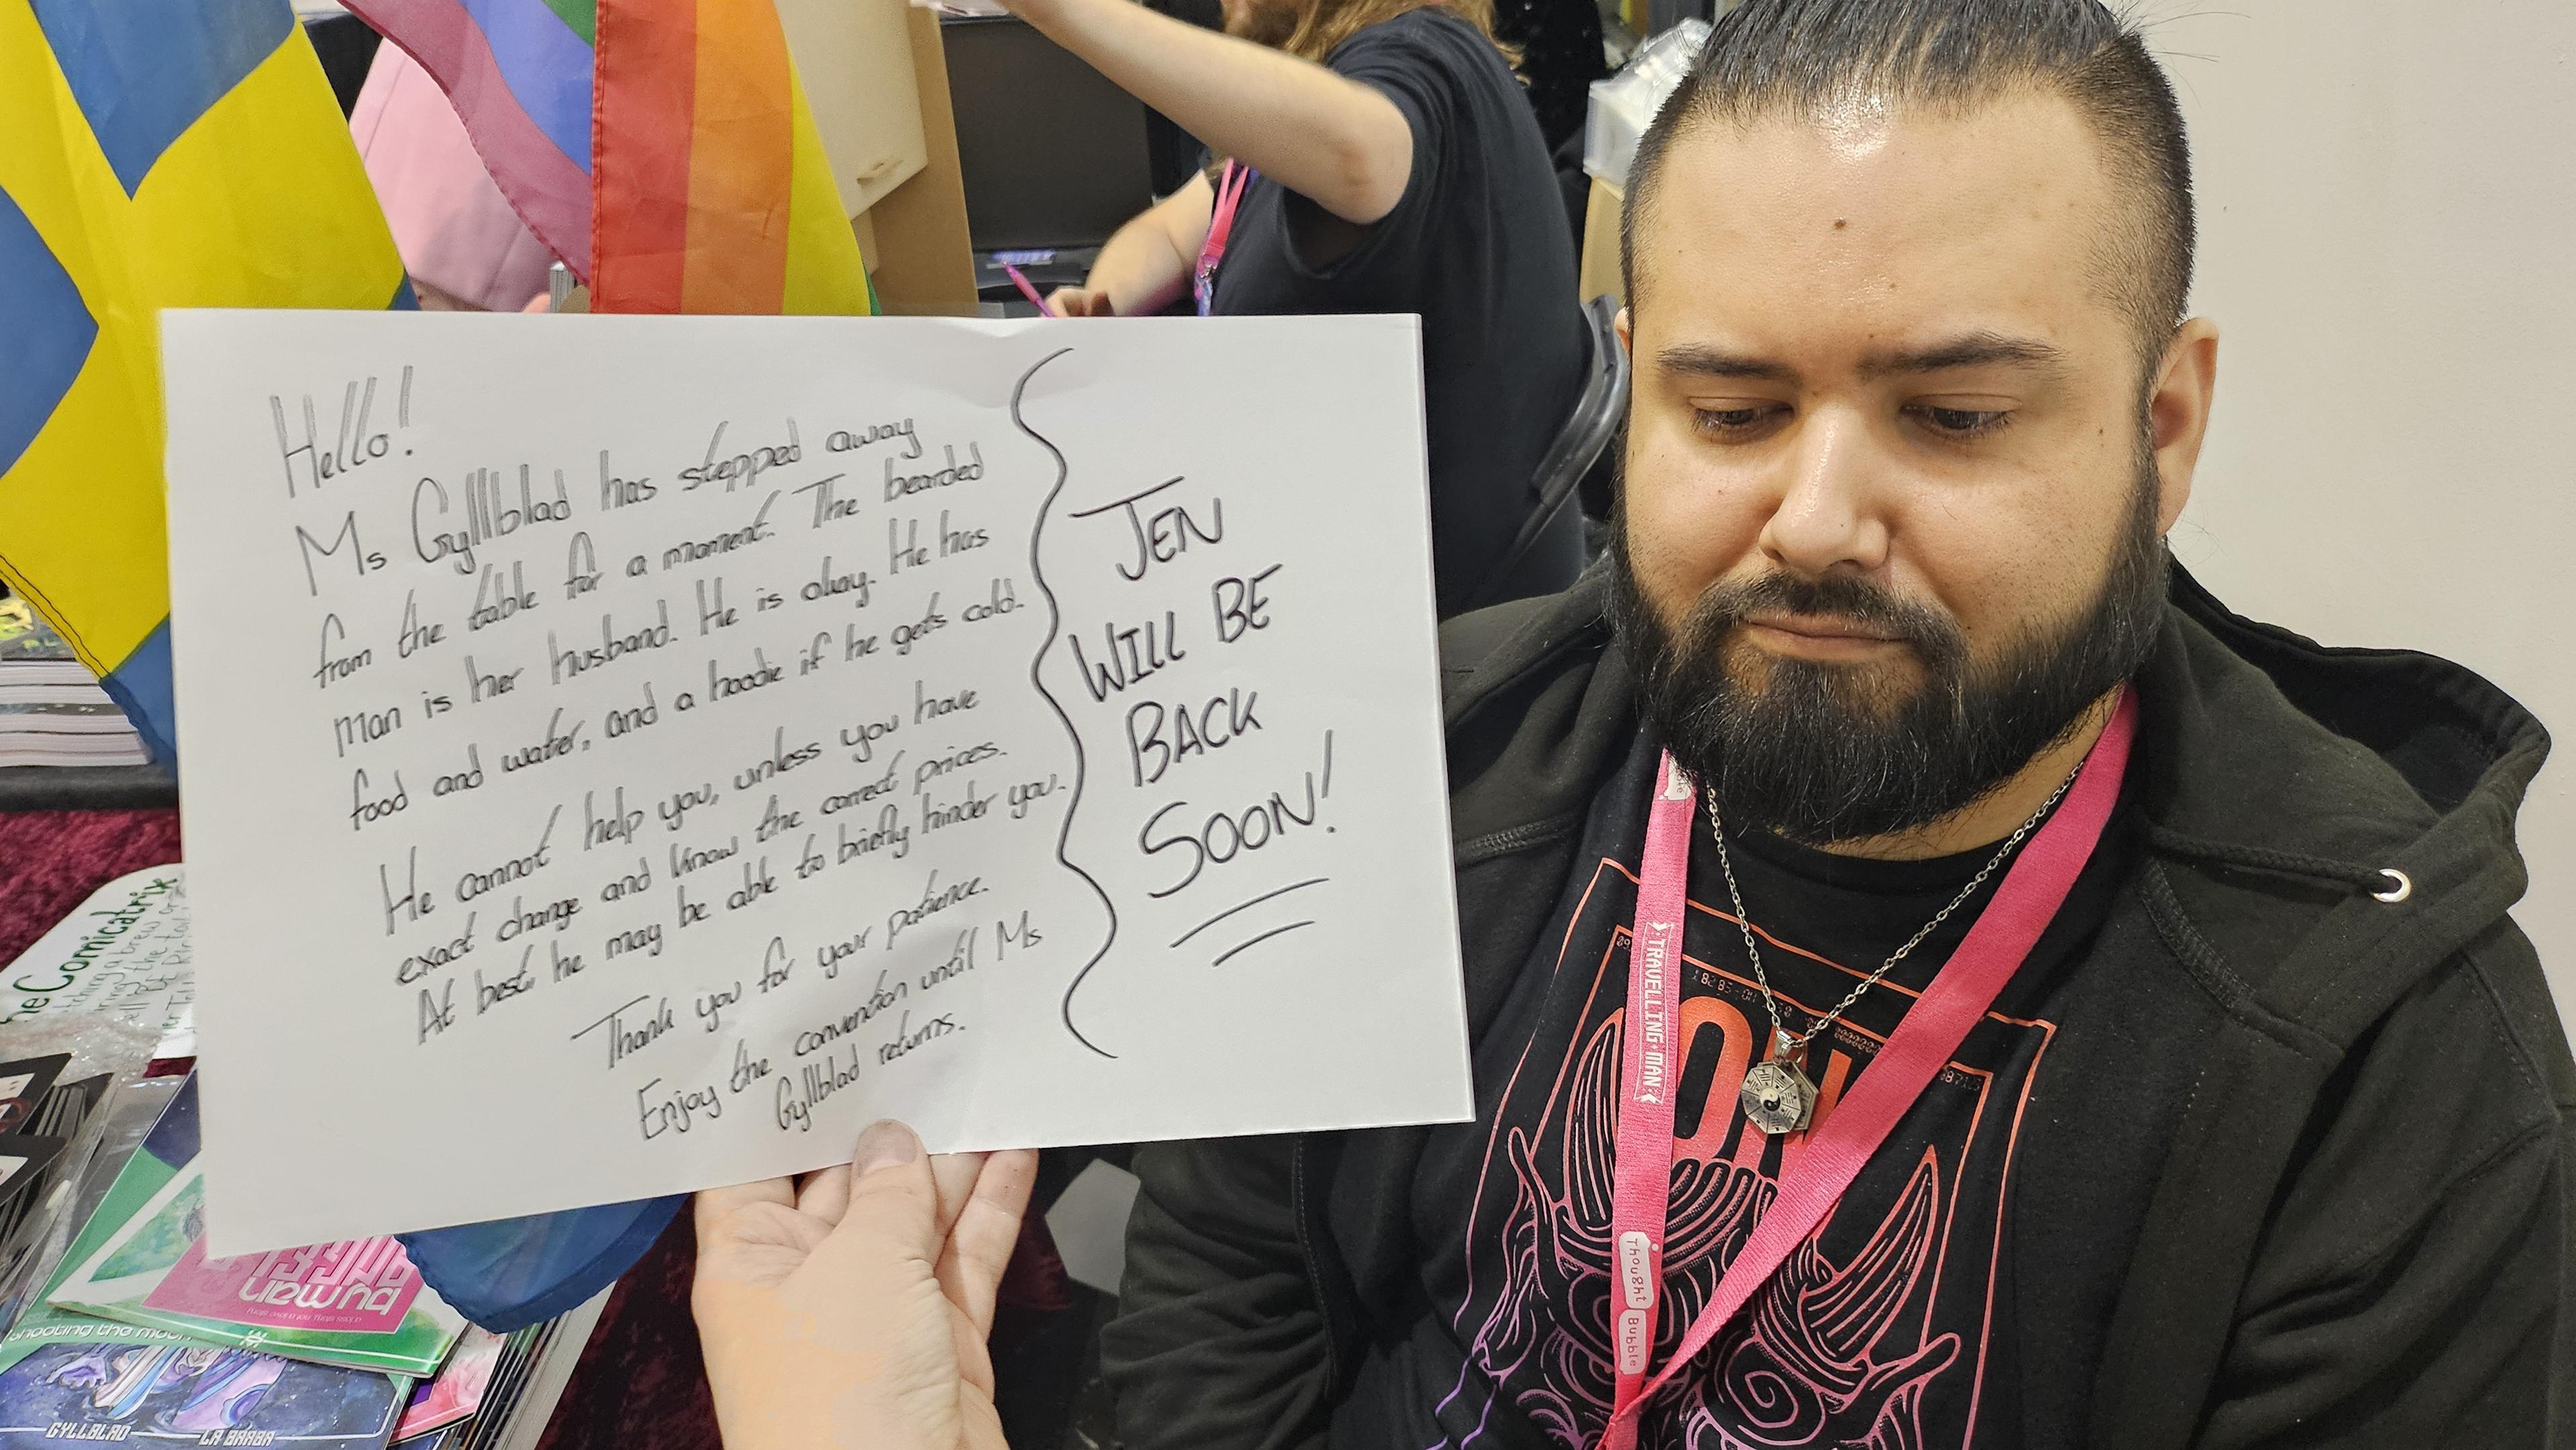 Hello!
Ms Gyllblad has stepped away
from the table for a moment. The bearded
man is her husband. He is okay. He has
food and water, and a hoodie if he gets cold.
He cannot help you, unless you have
exact change and know the correct prices.
At best, he may be able to briefly hinder you.
Thank you for your patience.
Enjoy the convention until Ms
Gyllblad returns.
JEN
WILL BE
BACK
SOON!
TRAVELLING MAN
Thought
Bubble
The Comicatrix
shooting the moon
GYLLBLAD
LA BARBA